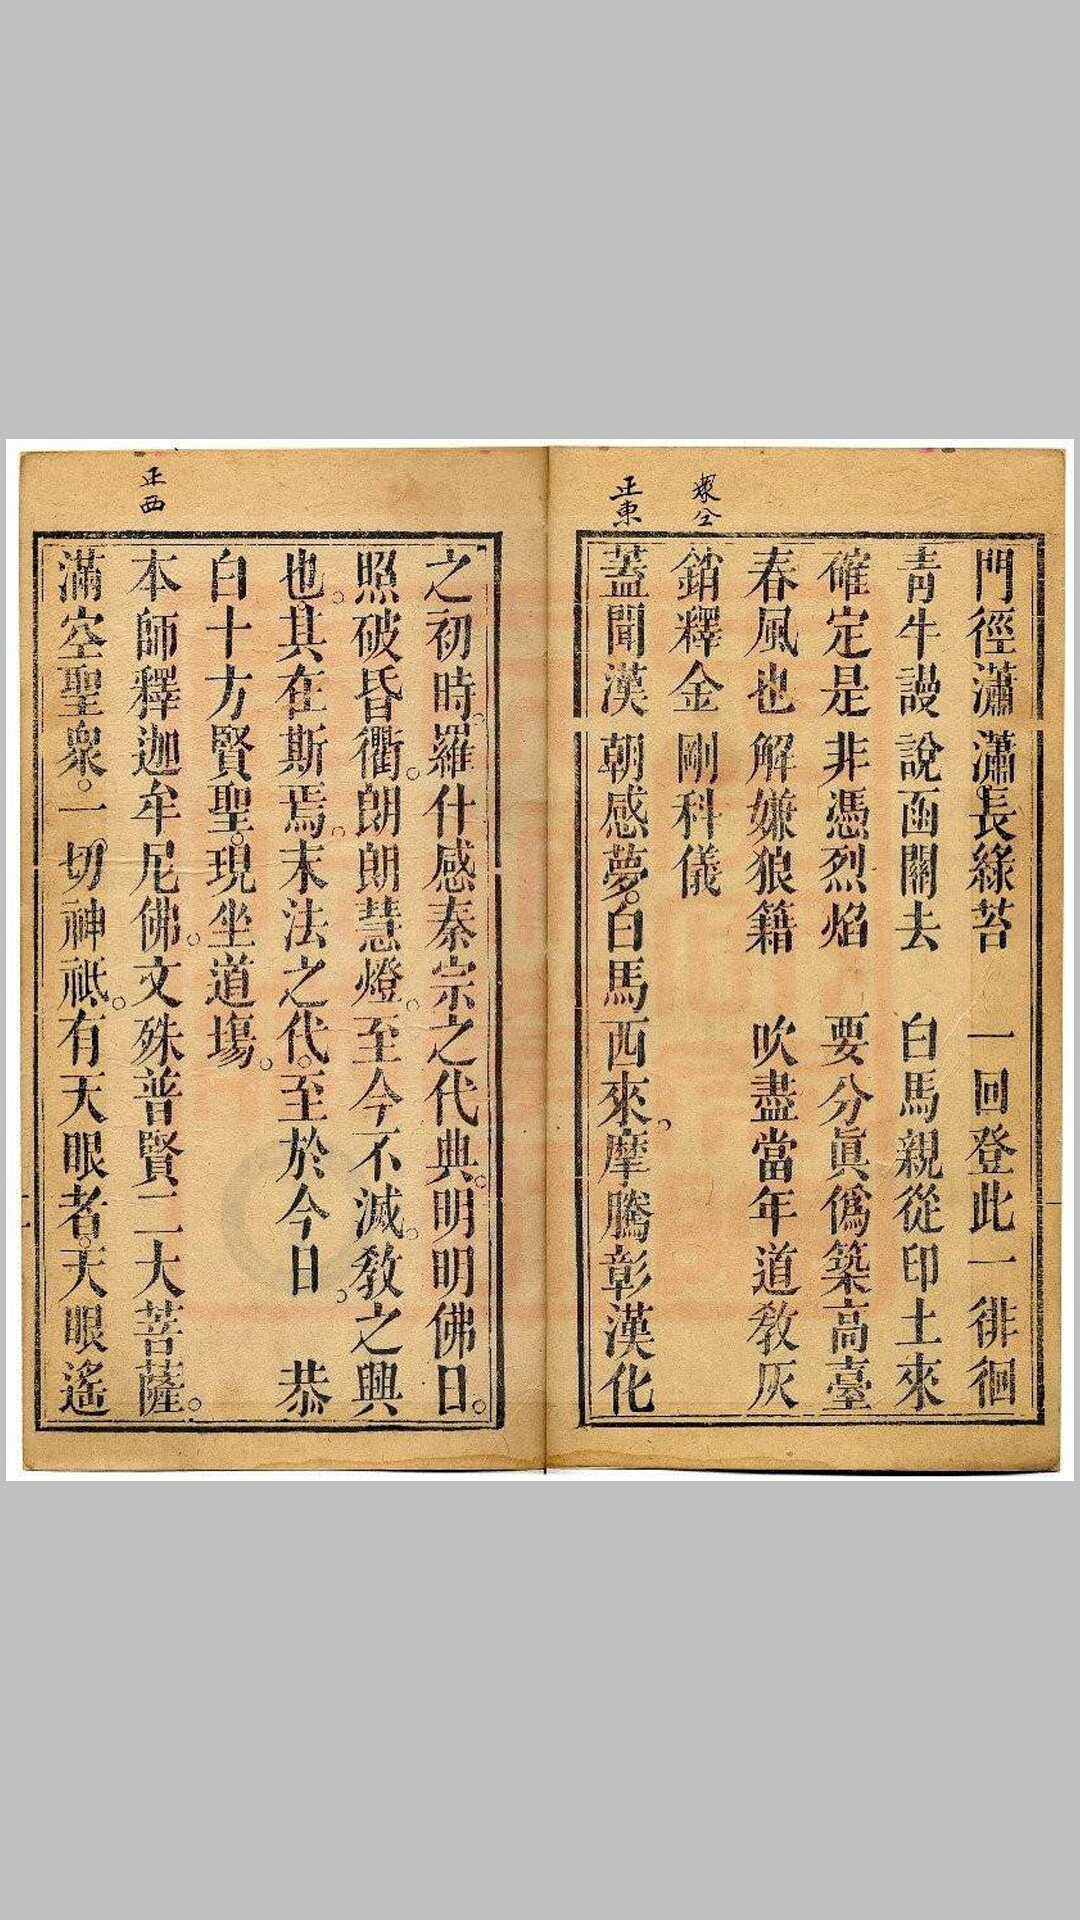 門徑瀟瀟。長綠苔　一回登此一徘徊
青牛謾說函關去　白馬親從印土來
確定是非憑烈焰　要分眞僞築高臺
春風也解嫌狼籍　吹盡當年道教灰
銷釋金剛科儀
正東
蓋聞漢朝感夢。白馬西來。摩騰彰漢化
之初時。羅什感秦宗之代典。明明佛日。
照破昏衢。朗朗慧燈。至今不滅。敎之興
也。其在斯焉。末法之代。至於今日。　恭
白十方賢聖。現坐道塲。
正西
本師釋迦牟尼佛。文殊普賢二大菩薩。
滿空聖衆。一切神祇。有天眼者。天眼遙